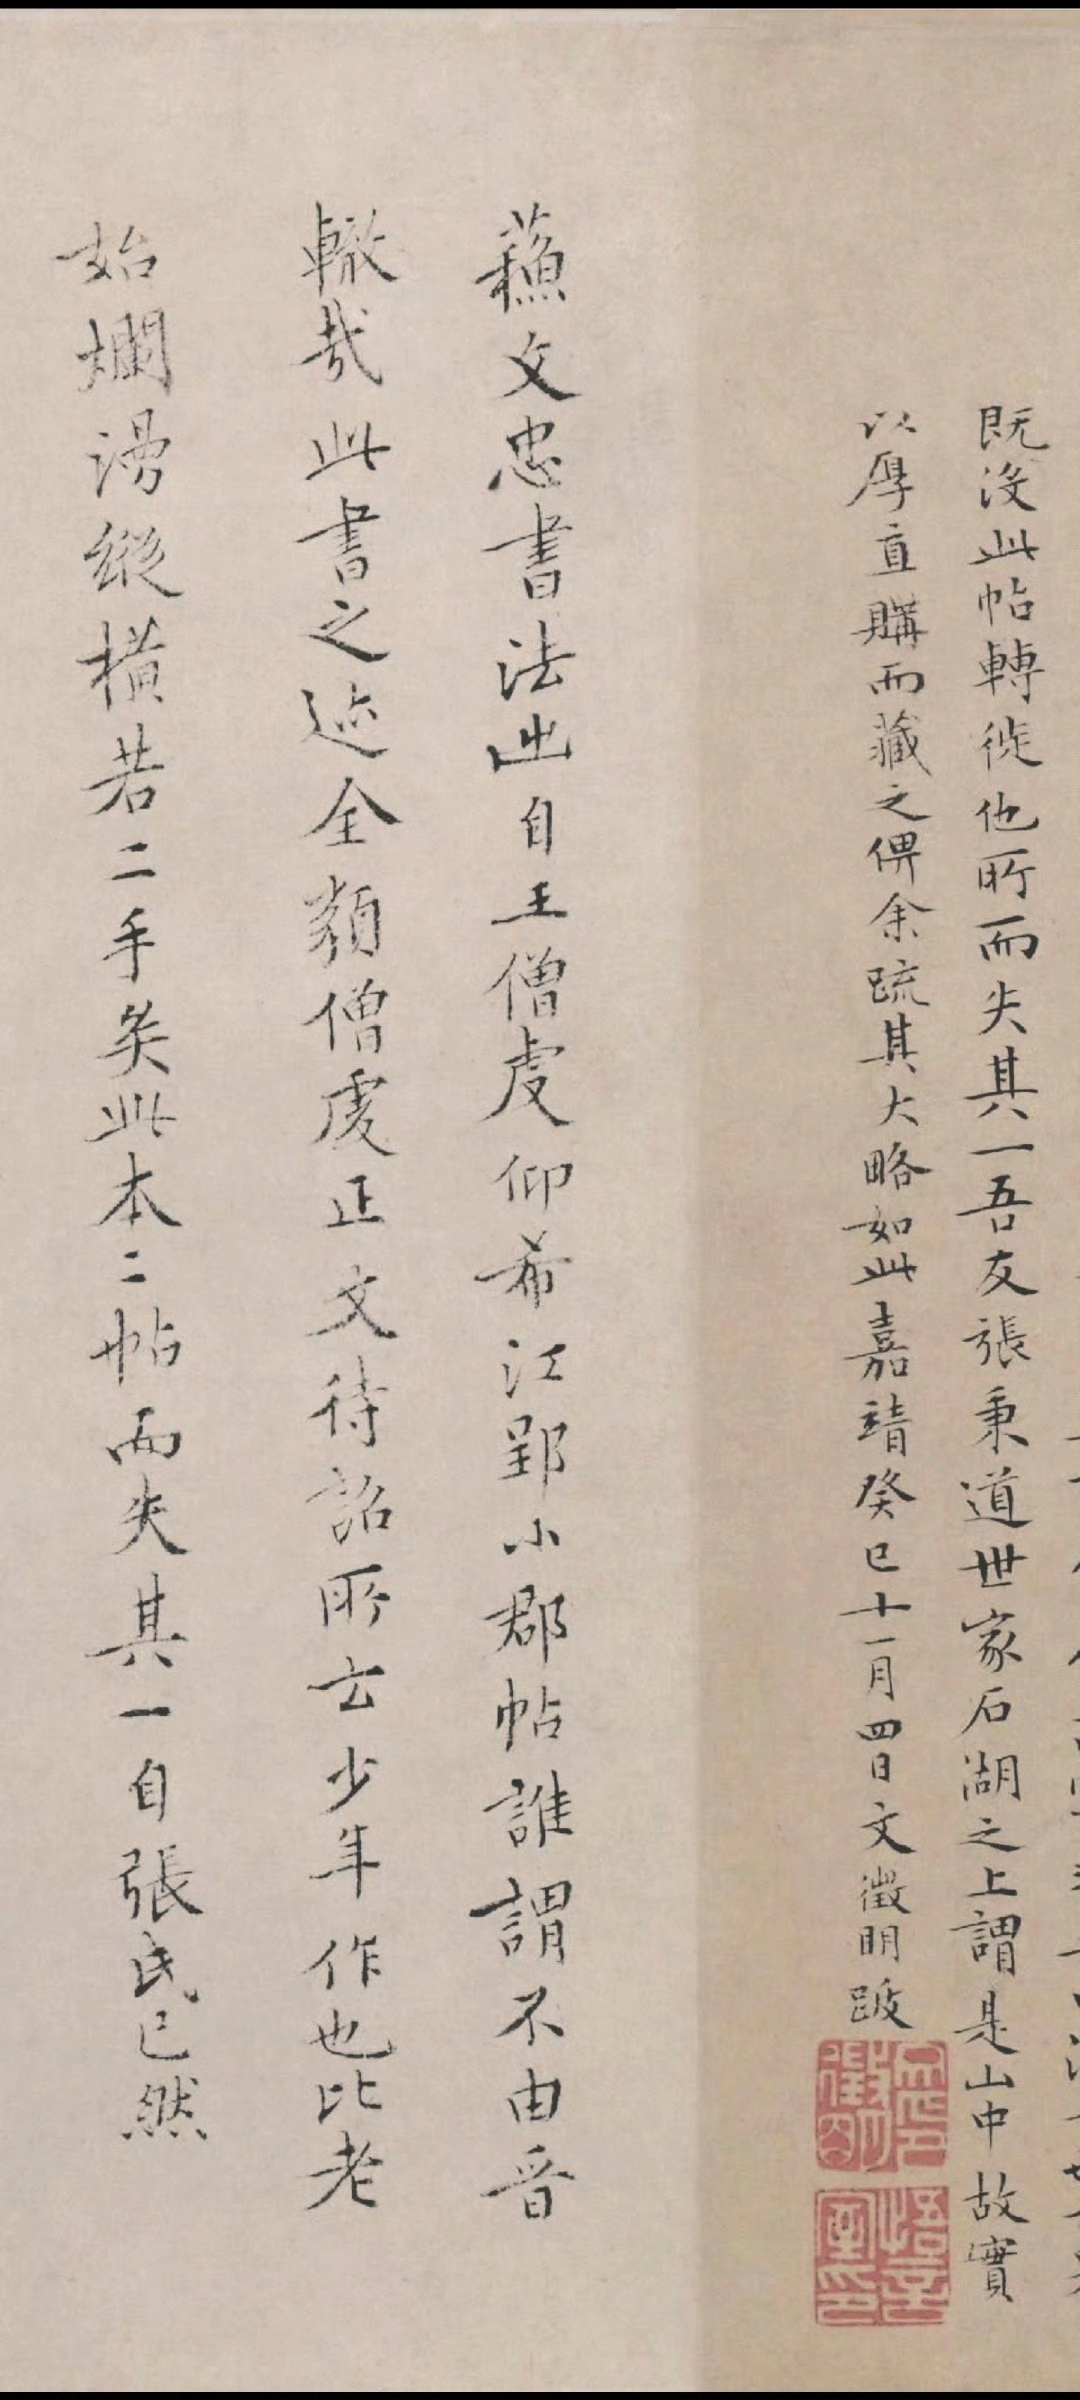 既没此帖轉徙他所而失其一吾友張秉道世家石湖之上謂是山中故實
以厚直購而藏之俾余疏其大略如此嘉靖癸巳十一月四日文徵明跋
蘇文忠書法出自王僧虔仰希江郢小郡帖誰謂不由晉
轍哉此書之迹全類僧虔正文待詔所云少年作也比老
始爛漫縱橫若二手矣此本二帖而失其一自張氏已然